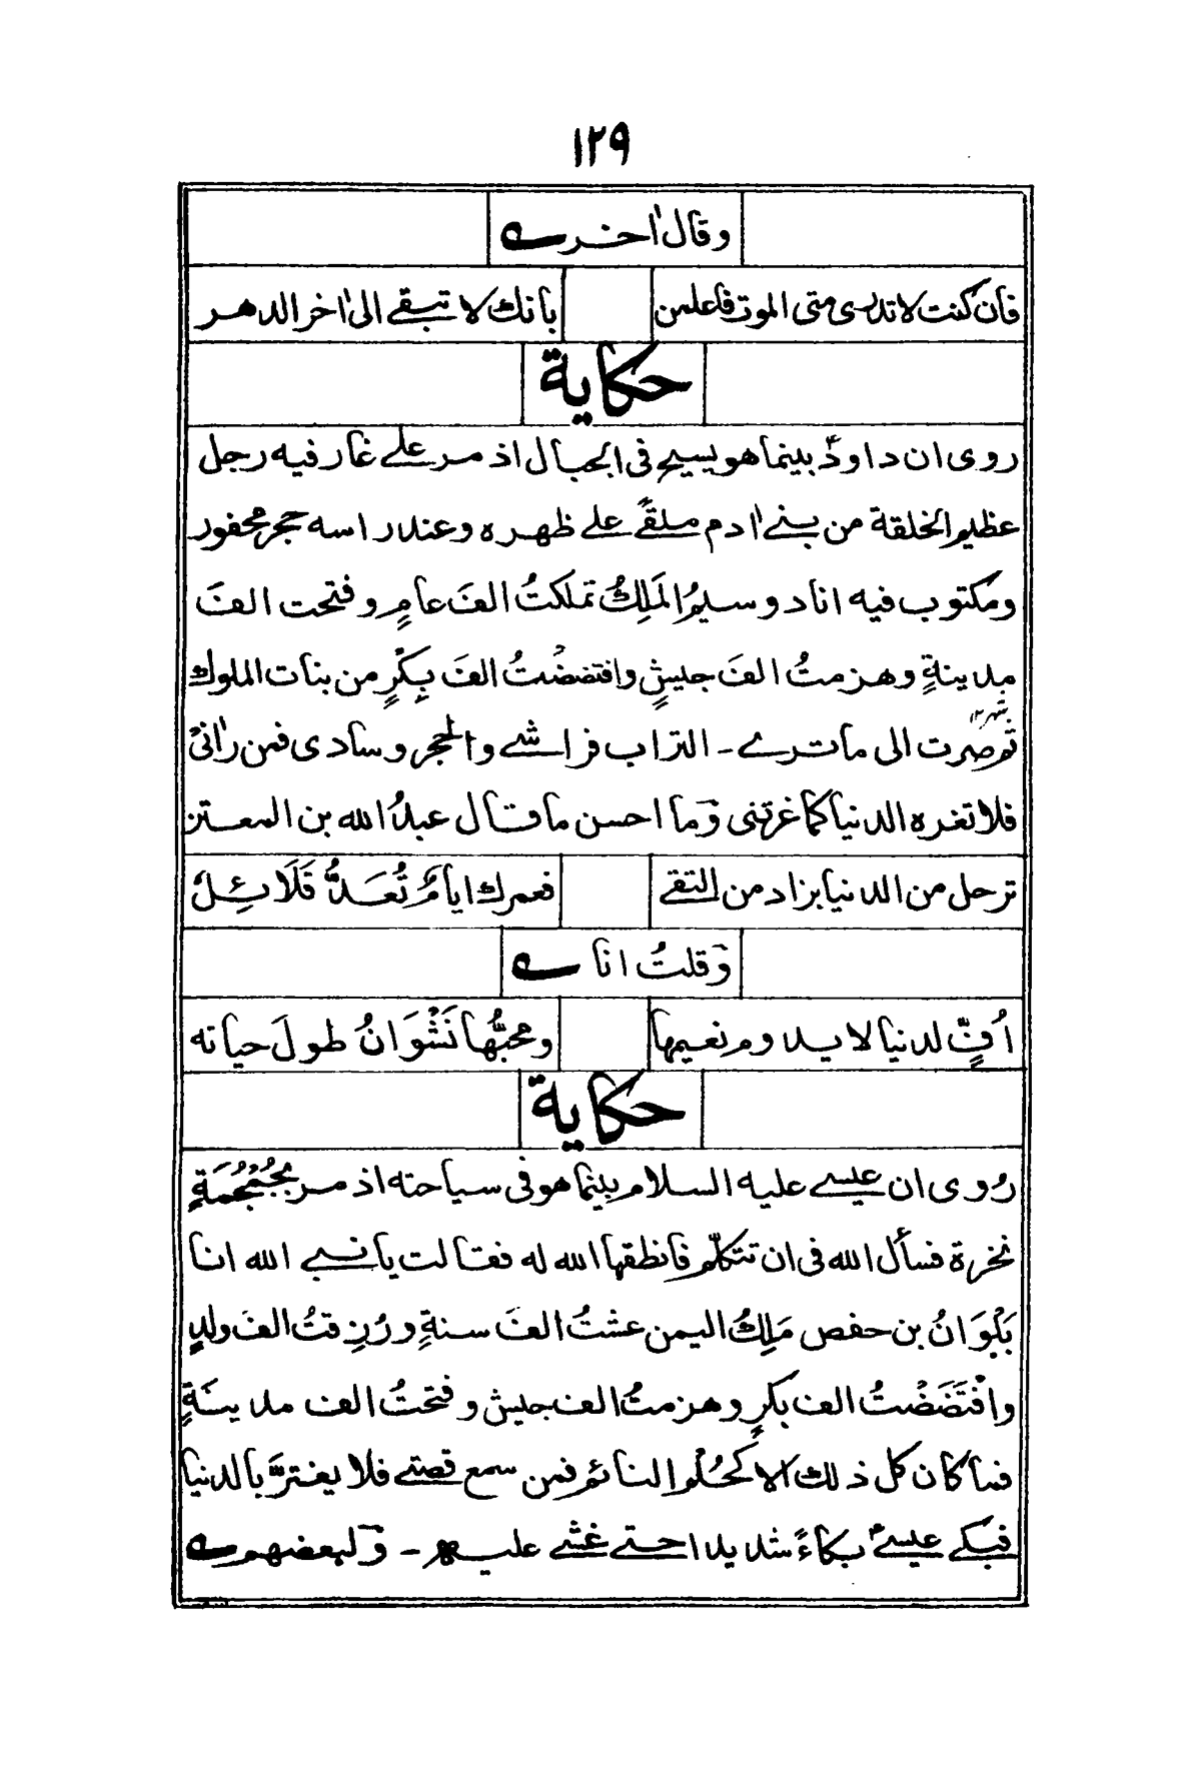 ١٢٩
وقال اٰخر ے
فان كنت لا تدرى متى الموت فاعلمن بانك لا تبقے الى اٰخر الدهر
حكاية
روى ان داودؑ بينما هو يسيح فى الجبال اذ مر علے غار فيه رجل
عظيم الخلقة من بنے اٰدم ملقےً علے ظهره وعند راسه حجر محفور
ومكتوب فيه انا دوسيمُ المَلِكُ تملكتُ الفَ عامٍ وفتحت الفَ
مدينةٍ وهزمتُ الفَ جيشٍ وافتضضْتُ الفَ بِكْرٍ من بنات الملوك
ثم صرت الى ما ترے ـ التراب فراشے والحجر وسادى فمن راٰنىْ
فلا تغره الدنيا كما غرتنى وٓما احسن ما قال عبدُ الله بن المعتز
ترحل من الدنيا بزاد من التقے فعمرك ايامٌ تُعَدُّ قَلَائِلٗ
وٓقلتُ انا ے
اُفٍّ لدنيا لا يدوم نعيمها ومحبُّها نَشْوَانُ طولَ حياته
حكاية
رُوى ان عيسے عليه السلام بينما هو فى سياحته اذ مر بجُمْجُمَةٍ
نخرة فسأل الله فى ان تتكلّم فانطقها الله له فقالت يا نبے الله انا
بَلْوَانُ بن حفص مَلِكُ اليمن عشتُ الفَ سنةٍ ورُزِقتُ الفَ ولدٍ
وافْتَضَضْتُ الف بكرٍ وهزمتُ الف جيش وفتحتُ الف مدينةٍ
فما كان كل ذلك الا كَحُلْمِ النائم فمن سمع قصتے فلا يغترَّ بالدنيا
فبكے عيسےؑ بكاءً شديدا حتے غشے عليه ـ وٓلبعضهم ے